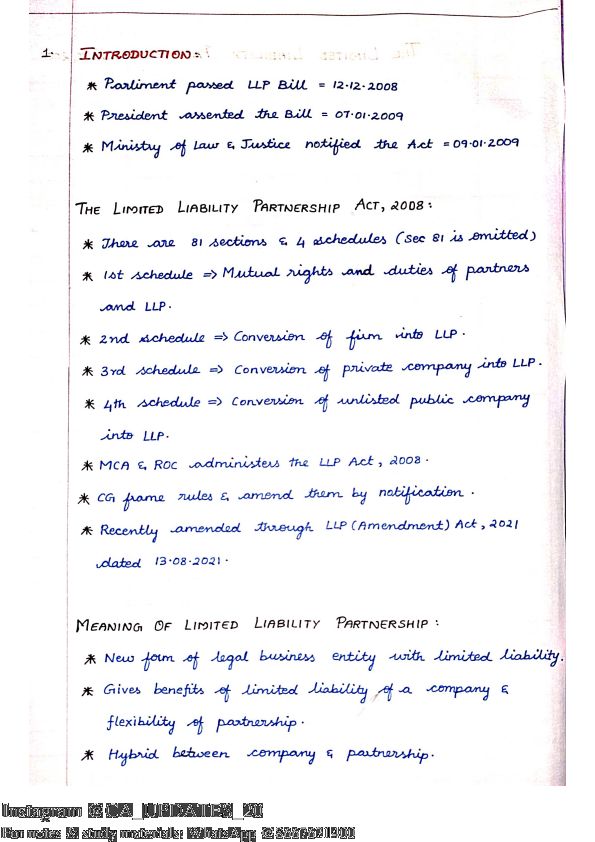 1. INTRODUCTION:
* Parliment passed LLP Bill = 12.12.2008
* President assented the Bill = 07.01.2009
* Ministry of Law & Justice notified the Act = 09.01.2009
THE LIMITED LIABILITY PARTNERSHIP ACT, 2008:
* There are 81 sections & 4 schedules (Sec 81 is omitted)
* 1st schedule => Mutual rights and duties of partners
and LLP.
* 2nd schedule => Conversion of firm into LLP.
* 3rd schedule => Conversion of private company into LLP.
* 4th schedule => Conversion of unlisted public company
into LLP.
* MCA & ROC administers the LLP Act, 2008.
* CG frame rules & amend them by notification.
* Recently amended through LLP (Amendment) Act, 2021
dated 13.08.2021.
MEANING OF LIMITED LIABILITY PARTNERSHIP:
* New form of legal business entity with limited liability.
* Gives benefits of limited liability of a company &
flexibility of partnership.
* Hybrid between company & partnership.
Instagram
For notes & study materials: WhatsApp